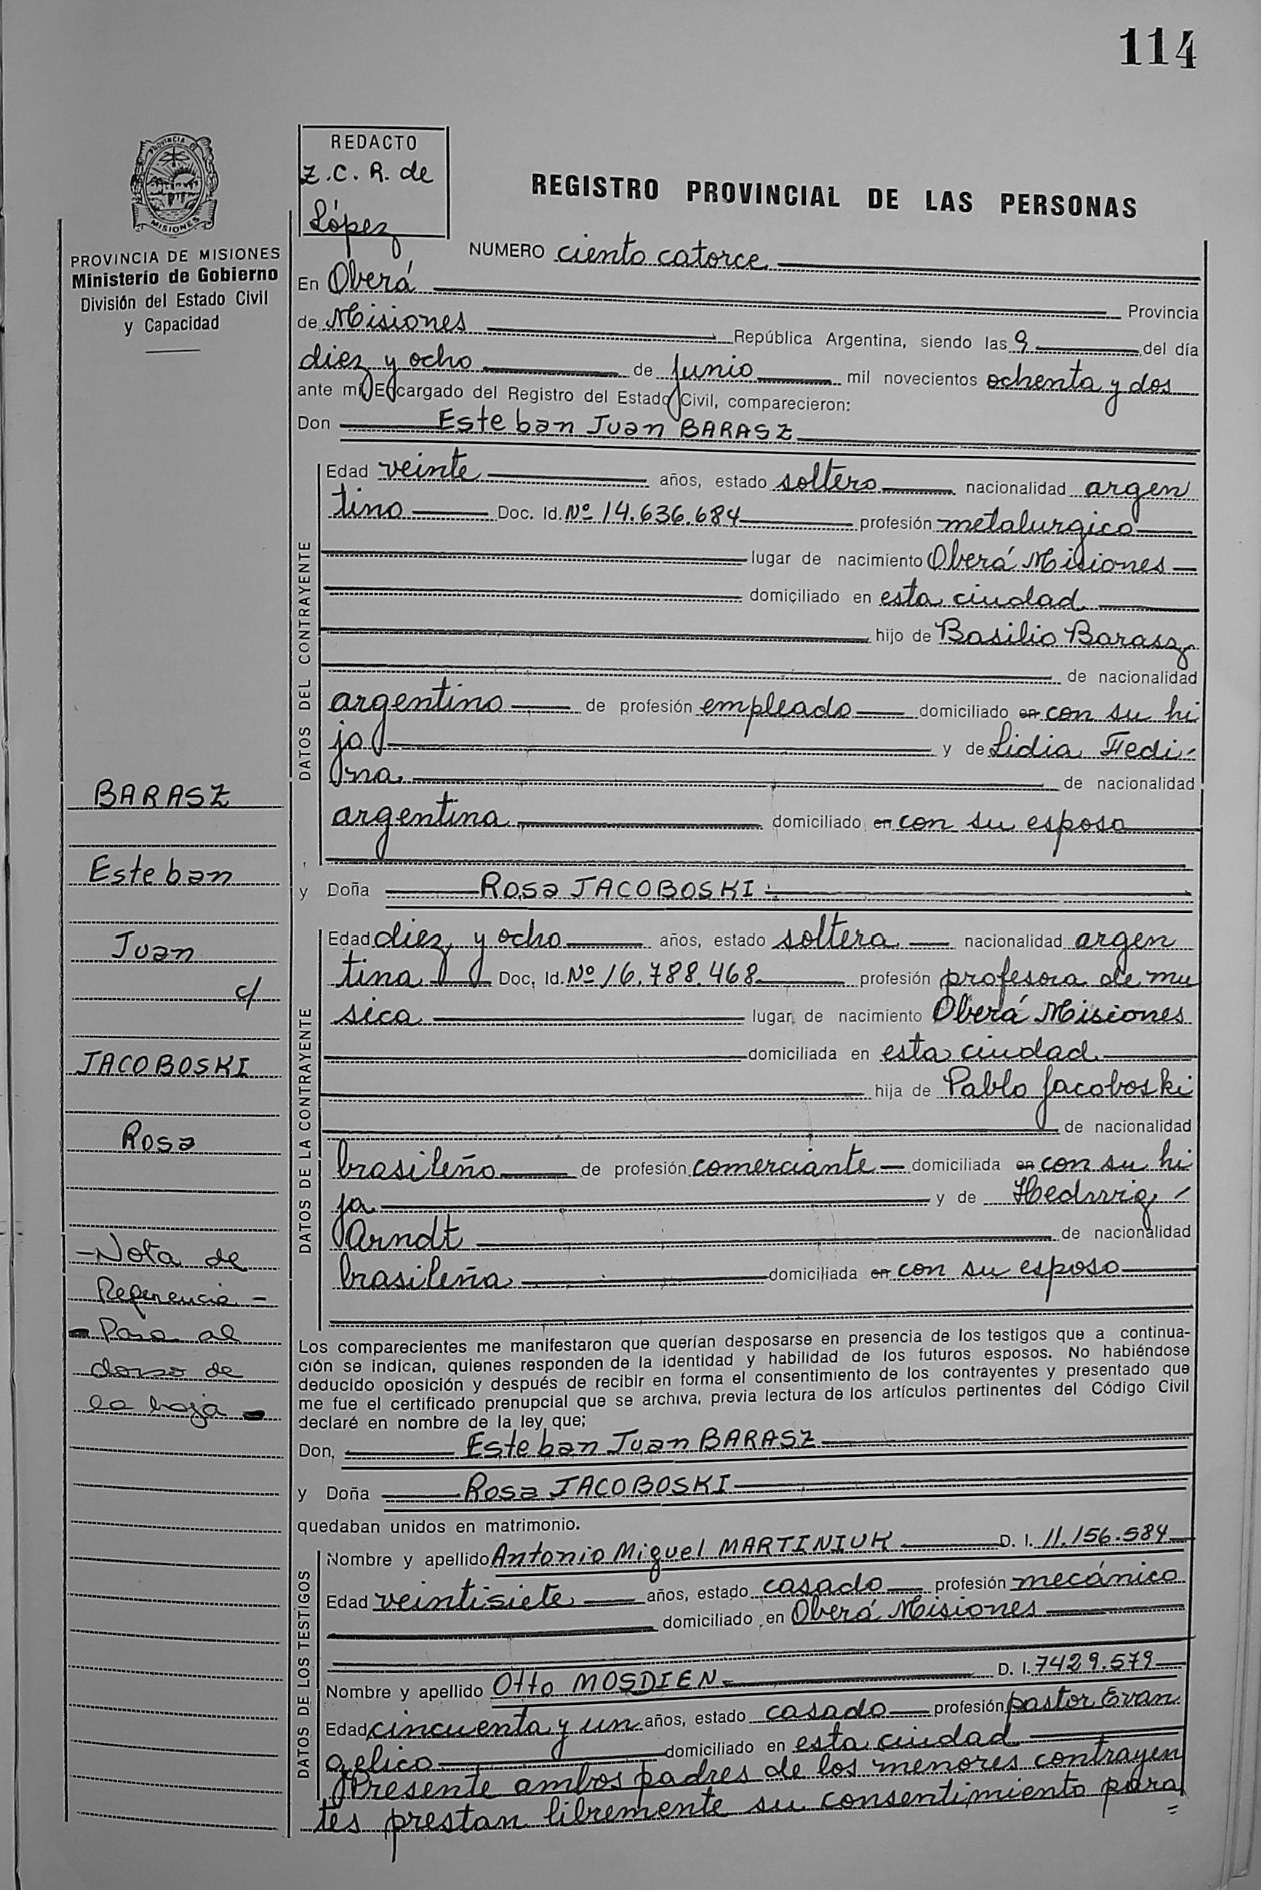 114
PROVINCIA DE
MISIONES
REDACTO
Z.C.R. de
López
REGISTRO PROVINCIAL DE LAS PERSONAS
PROVINCIA DE MISIONES
Ministerio de Gobierno
División del Estado Civil
y Capacidad
NUMERO ciento catorce
En Oberá Provincia
de Misiones República Argentina, siendo las 9 del día
diez y ocho de Junio mil novecientos ochenta y dos
ante mi Encargado del Registro del Estado Civil, comparecieron:
Don Esteban Juan BARASZ
DATOS DEL CONTRAYENTE
Edad veinte años, estado soltero nacionalidad argen
tino Doc. Id. Nº 14.636.684 profesión metalurgico
lugar de nacimiento Oberá Misiones
domiciliado en esta ciudad
hijo de Basilio Barasz
de nacionalidad
argentino de profesión empleado domiciliado en con su hi
jo y de Lidia Fedi-
na de nacionalidad
argentina domiciliado en con su esposo
y Doña Rosa JACOBOSKI
DATOS DE LA CONTRAYENTE
Edad diez y ocho años, estado soltera nacionalidad argen
tina Doc. Id. Nº 16.788.468 profesión profesora de mu
sica lugar de nacimiento Oberá Misiones
domiciliada en esta ciudad
hija de Pablo Jacoboski
de nacionalidad
brasileño de profesión comerciante domiciliada en con su hi
ja y de Hedwig
Arndt de nacionalidad
brasileña domiciliada en con su esposo
BARASZ
Esteban
Juan
c/
JACOBOSKI
Rosa
-Nota de
Referencia-
-Pasa al
dorso de
la hoja-
Los comparecientes me manifestaron que querían desposarse en presencia de los testigos que a continua-
ción se indican, quienes responden de la identidad y habilidad de los futuros esposos. No habiéndose
deducido oposición y después de recibir en forma el consentimiento de los contrayentes y presentado que
me fue el certificado prenupcial que se archiva, previa lectura de los artículos pertinentes del Código Civil
declaré en nombre de la ley que;
Don, Esteban Juan BARASZ
y Doña Rosa JACOBOSKI
quedaban unidos en matrimonio.
DATOS DE LOS TESTIGOS
Nombre y apellido Antonio Miguel MARTINIUK D. I. 11.156.584
Edad veintisiete años, estado casado profesión mecánico
domiciliado en Oberá Misiones
Nombre y apellido Otto MOSDIEN D. I. 7429.579
Edad cincuenta y un años, estado casado profesión pastor Evan
gelico domiciliado en esta ciudad
Presente ambos padres de los menores contrayen
tes prestan libremente su consentimiento para
=